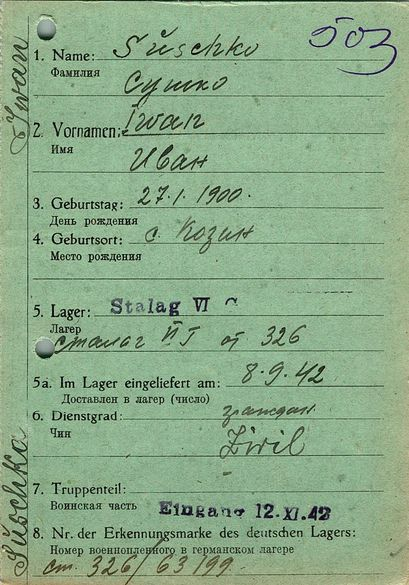 503
1. Name: Süschko
Фамилия Сушко
2. Vornamen: Iwan
Имя Иван
3. Geburtstag: 27.1.1900.
День рождения
4. Geburtsort: с. Козин
Место рождения
5. Lager: Stalag VI C
Лагер
сталаг VI от 326
5a. Im Lager eingeliefert am: 8.9.42
Доставлен в лагер (число)
6. Dienstgrad: граждан.
Чин Zivil
7. Truppenteil:
Воинская часть Eingang 12.XI.42
8. Nr. der Erkennungsmarke des deutschen Lagers:
Номер военнопленного в германском лагере
ст. 326/63199.
Süschka Iwan